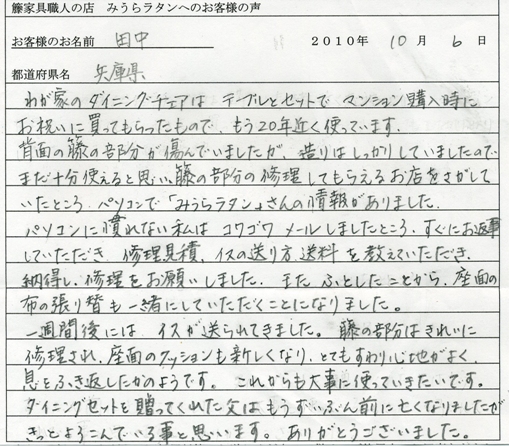 籐家具職人の店　みうらラタンへのお客様の声
お客様のお名前　田中　２０１０年　10 月　6 日
都道府県名　兵庫県
わが家のダイニングチェアは テーブルとセットで マンション購入時に
お祝いに買ってもらったもので、もう20年近く使っています.
背面の籐の部分が傷んでいましたが、造りはしっかりしていましたので
まだ十分使えると思い、籐の部分の修理してもらえるお店をさがして
いたところ、パソコンで「みうらラタン」さんの情報がありました.
パソコンに慣れない私は コワゴワ メールしましたところ、すぐにお返事
していただき、修理見積、イスの送り方、送料 を教えていただき、
納得し、修理をお願いしました. また ふとした ことから、座面の
布の張り替も一緒にしていただくことになりました。
一週間後には イスが送られてきました。 籐の部分はきれいに
修理され、座面のクッションも新しくなり、とてもすわり心地がよく、
息をふき返したかのようです。 これからも大事に使っていきたいです。
ダイニングセットを贈ってくれた父はもうずいぶん前に亡くなりましたが
きっとよろこんでいる事と思います。 ありがとうございました。